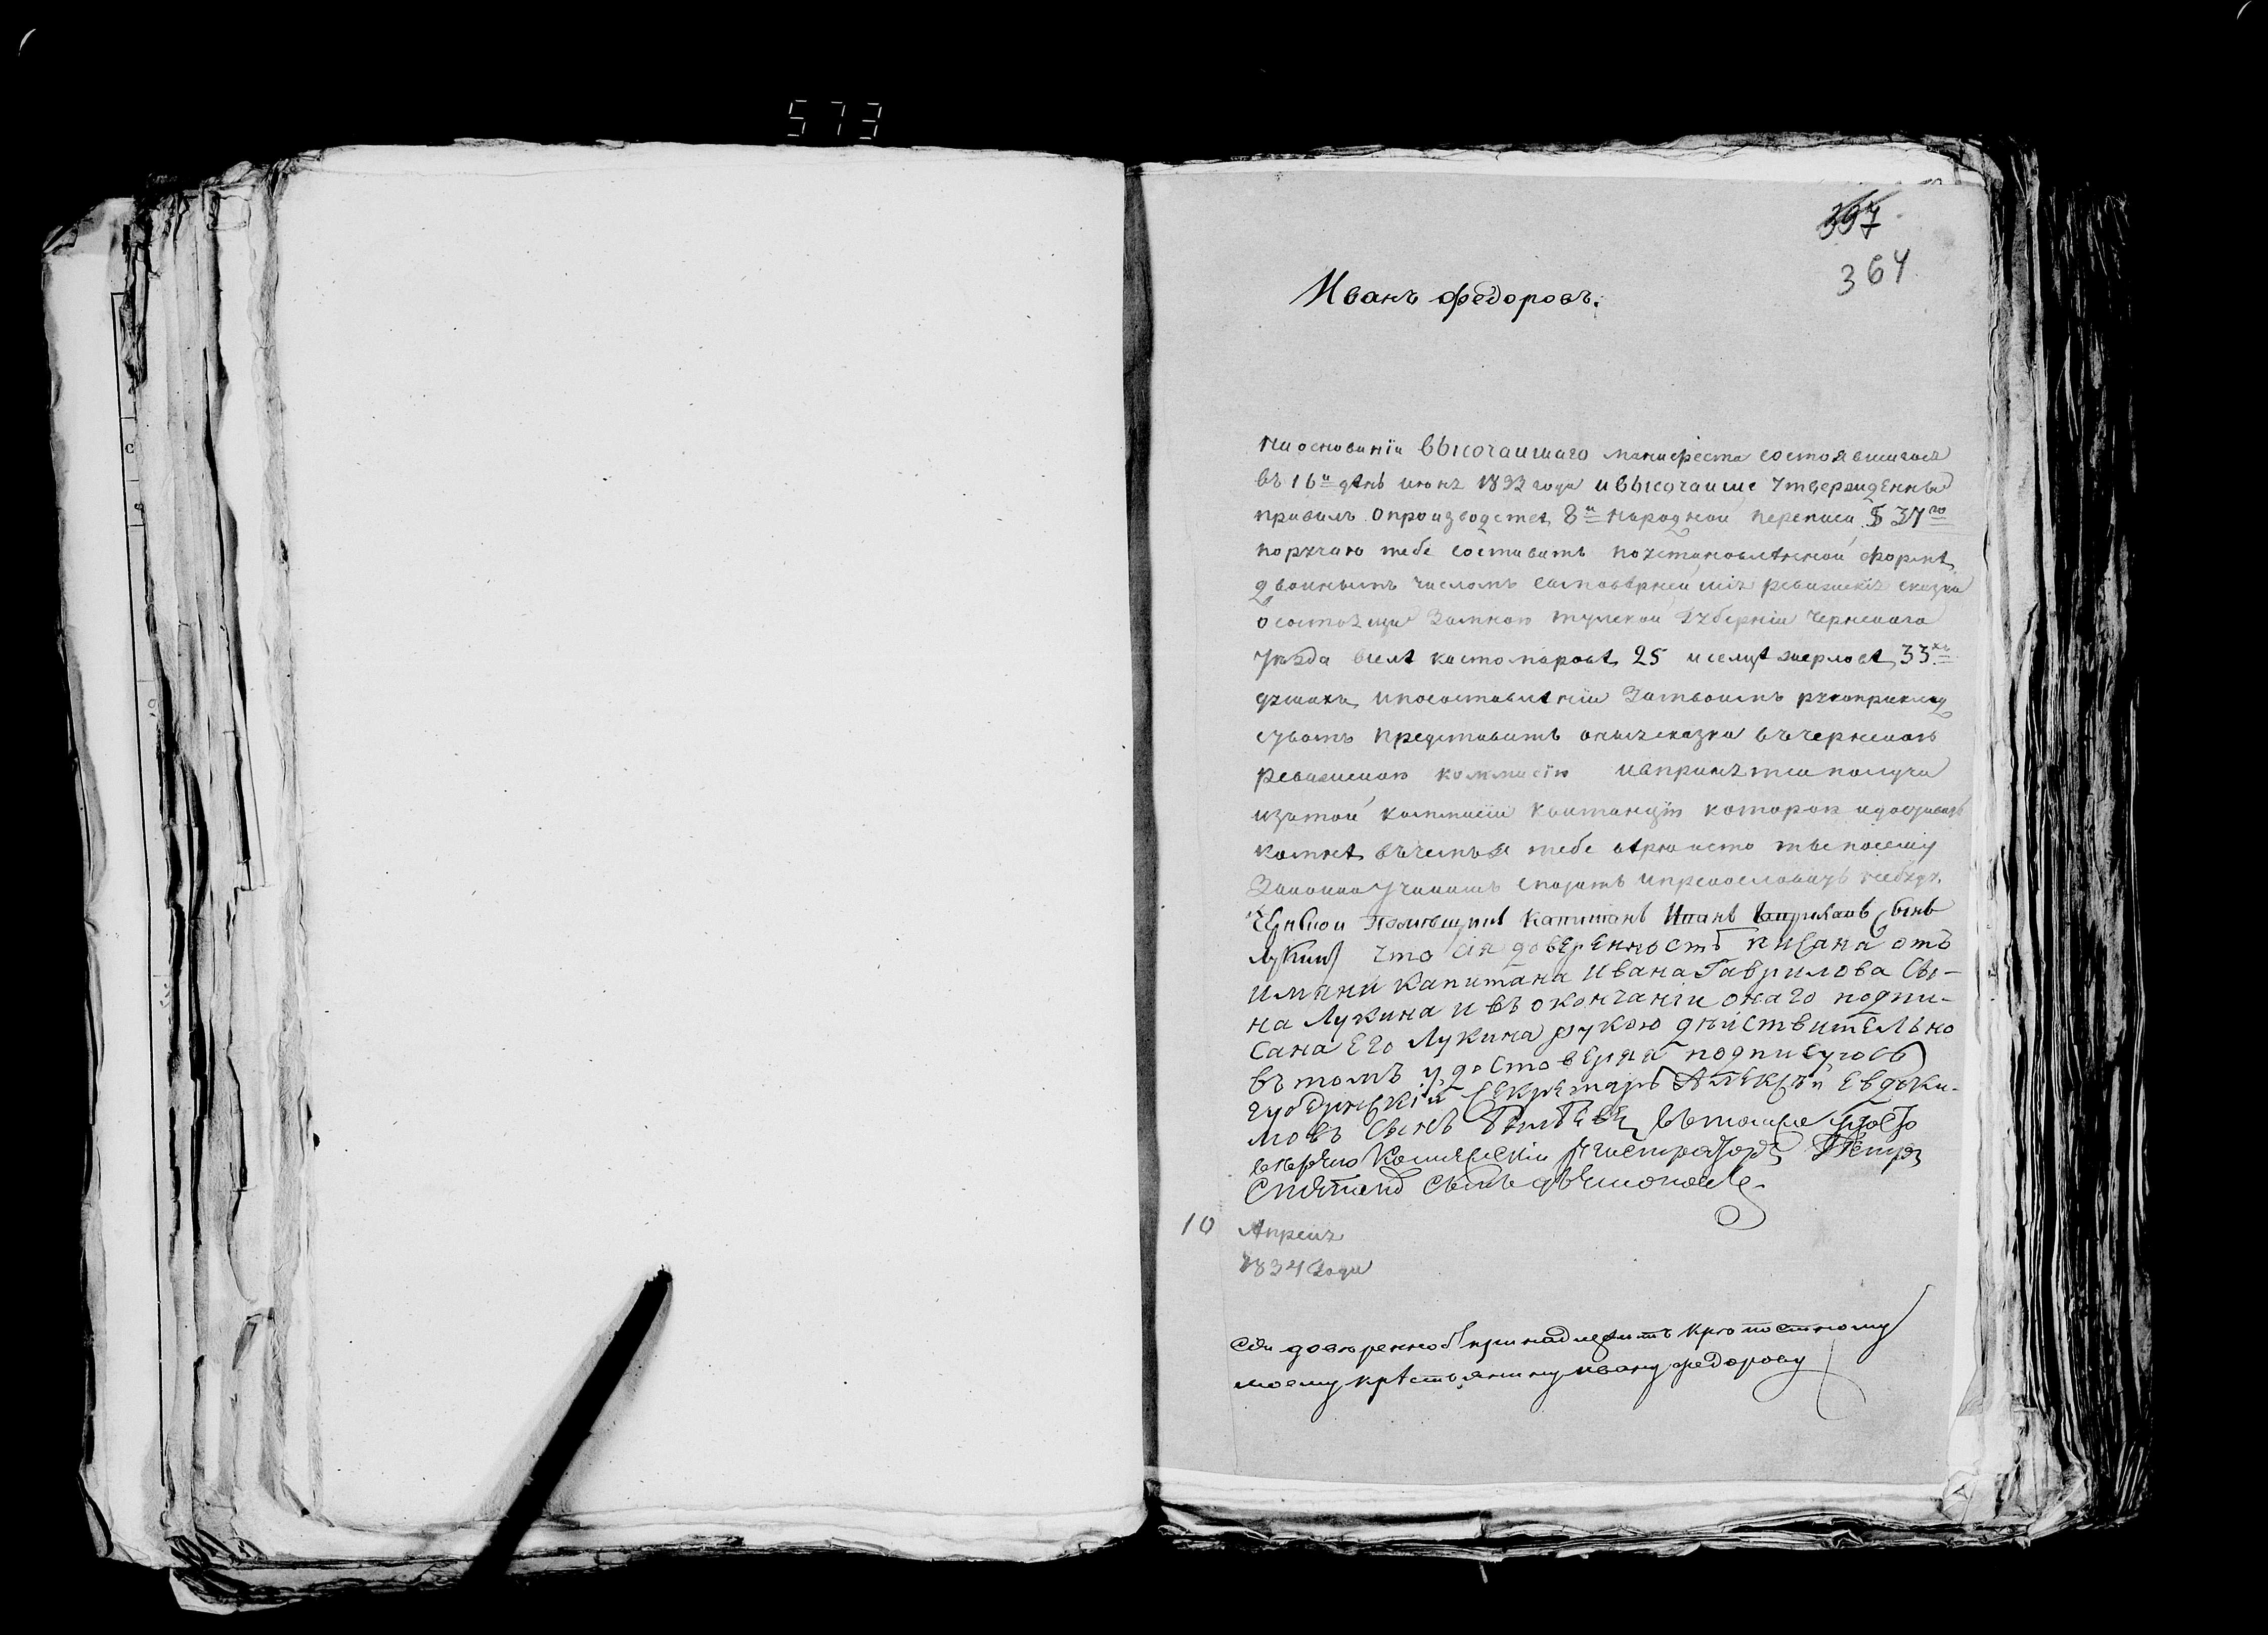 573
397
364
Иванъ Федоровъ.
На основании высочаишаго манифеста состоявшагося
въ 16й день июня 1833 года и высочаише утвержденны
правилъ о производстве 8й народной переписи § 37го
поручаю тебе составить по установленной форме
двоинымъ числомъ самовернейшия ревизския сказки
о состоящи за мною тулскои губернии чернскаго
уезда в селе костомарове 25 и селце 33хъ
душахъ и по составлении за твоимъ рукоприклад
сувомъ представить оныя сказки въ чернскою
ревизскою коммисию и в принятии получа
изъ той коммисии квитанцию которою и доставить
ко мне въ чемъ я тебе верю и что ты по сему
законно учинишъ спорить и прекословить небуду.
Чернскои помещикъ капитанъ Иванъ Гавриловъ сынъ
Лукинъ что сия доверенность писана отъ
имяни капитана Ивана Гаврилова сы-
на Лукина и въ окончании онаго подпи-
сана Его Лукина рукою действительно
въ томъ удостоверяя подписуюсь
губернский секретарь Алексей Евдоки-
мовъ сынъ въ томже удосто
веряю Колижский Регистраторъ Петръ
сынъ
10 Апреля
1834 года
Сия доверенность принадлежитъ крепостному
моему крестьянину ивану федорову